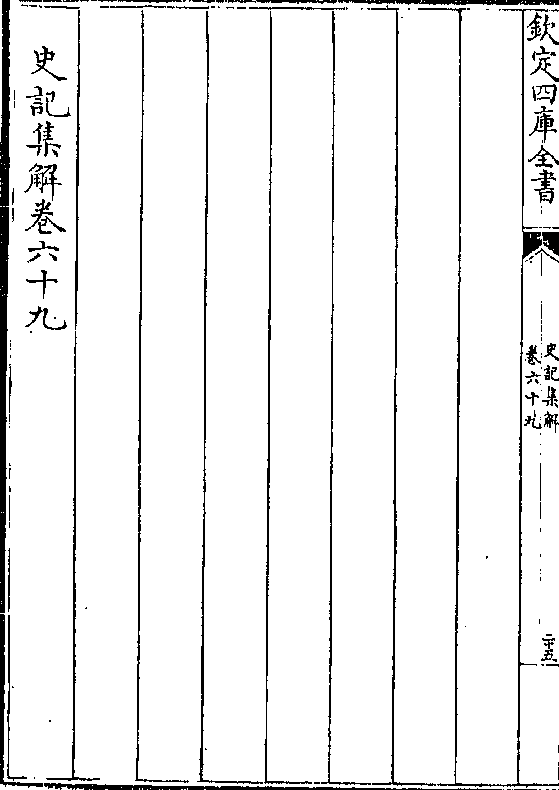 欽定四庫全書
史記集解
卷六十九
二十五
史記集解卷六十九